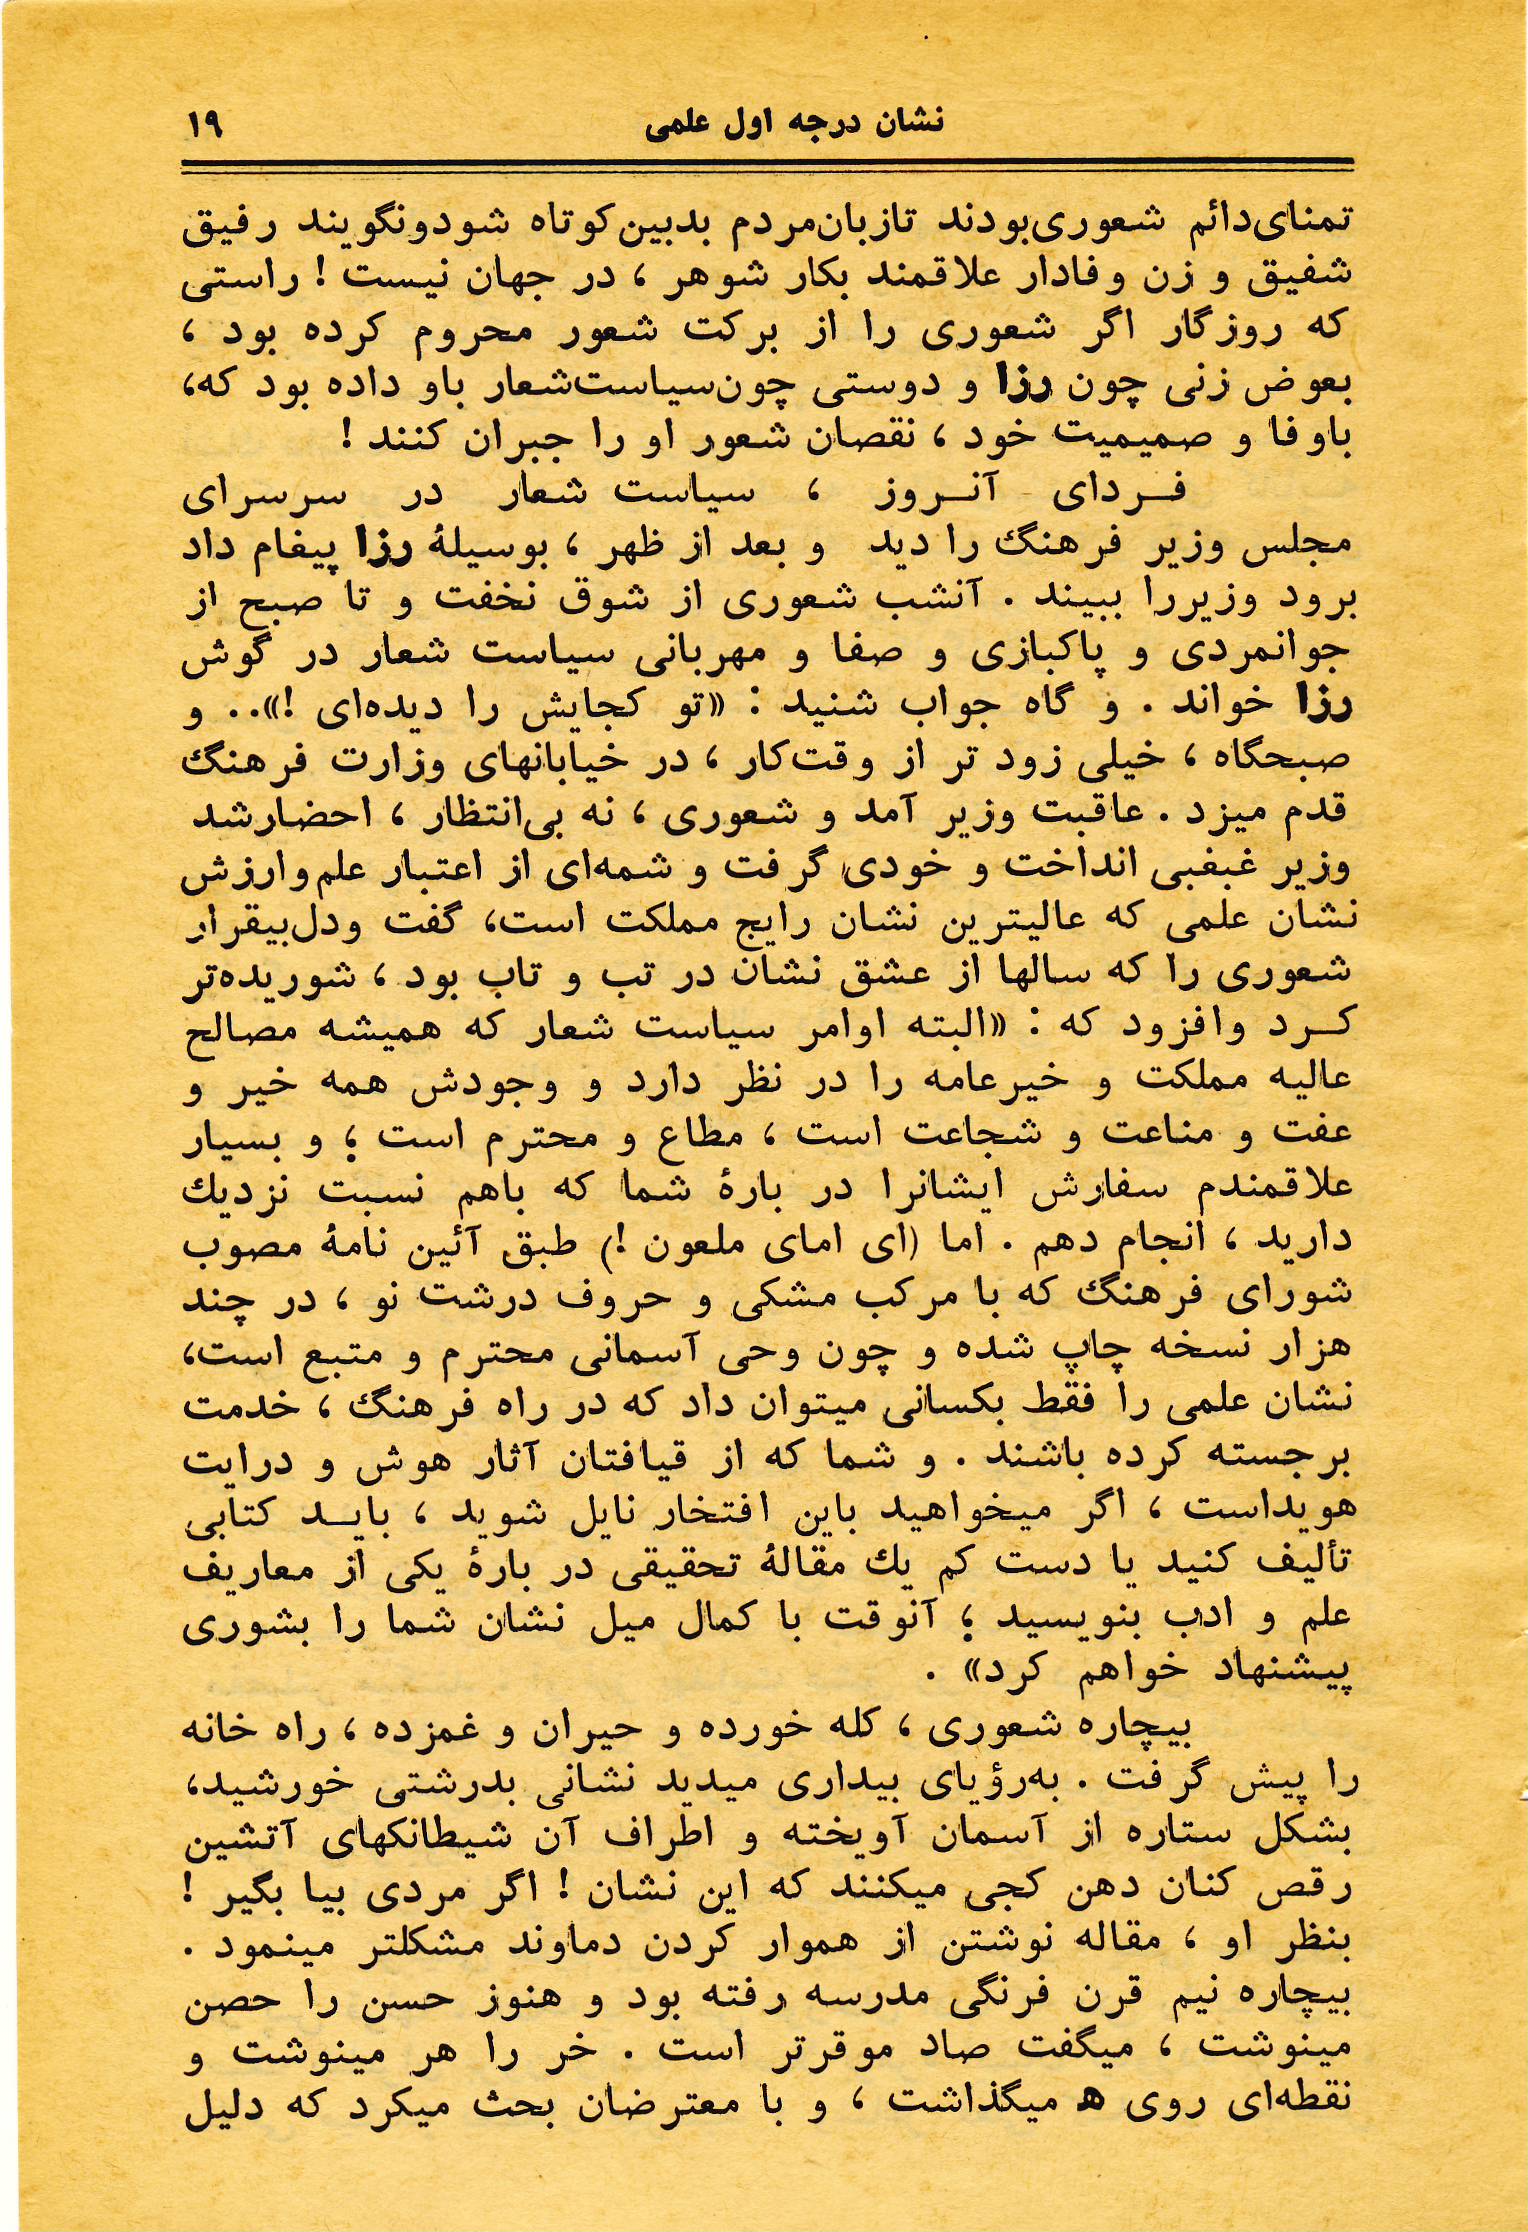 نشان درجه اول علمی ۱۹
تمنای‌دائم شعوری‌بودند تازبان‌مردم بدبین‌کوتاه شودونگویند رفیق
شفیق و زن وفادار علاقمند بکار شوهر ، در جهان نیست ! راستی
که روزگار اگر شعوری را از برکت شعور محروم کرده بود ،
بعوض زنی چون رزا و دوستی چون‌سیاست‌شعار باو داده بود که،
باوفا و صمیمیت خود ، نقصان شعور او را جبران کنند !
فـردای آنـروز ، سیاست شعار در سرسرای
مجلس وزیر فرهنگ را دید و بعد از ظهر ، بوسیلهٔ رزا پیغام داد
برود وزیررا ببیند . آنشب شعوری از شوق نخفت و تا صبح از
جوانمردی و پاکبازی و صفا و مهربانی سیاست شعار در گوش
رزا خواند . و گاه جواب شنید : «تو کجایش را دیده‌ای !».. و
صبحگاه ، خیلی زود تر از وقت‌کار ، در خیابانهای وزارت فرهنگ
قدم میزد . عاقبت وزیر آمد و شعوری ، نه بی‌انتظار ، احضارشد
وزیر غبغبی انداخت و خودی گرفت و شمه‌ای از اعتبار علم‌وارزش
نشان علمی که عالیترین نشان رایج مملکت است، گفت ودل‌بیقرار
شعوری را که سالها از عشق نشان در تب و تاب بود ، شوریده‌تر
کـرد وافزود که : «البته اوامر سیاست شعار که همیشه مصالح
عالیه مملکت و خیرعامه را در نظر دارد و وجودش همه خیر و
عفت و مناعت و شجاعت است ، مطاع و محترم است ؛ و بسیار
علاقمندم سفارش ایشانرا در بارهٔ شما که باهم نسبت نزدیك
دارید ، انجام دهم . اما (ای امای ملعون !) طبق آئین نامهٔ مصوب
شورای فرهنگ که با مرکب مشکی و حروف درشت نو ، در چند
هزار نسخه چاپ شده و چون وحی آسمانی محترم و متبع است،
نشان علمی را فقط بکسانی میتوان داد که در راه فرهنگ ، خدمت
برجسته کرده باشند . و شما که از قیافتان آثار هوش و درایت
هویداست ، اگر میخواهید باین افتخار نایل شوید ، بایـد کتابی
تألیف کنید یا دست کم یك مقالهٔ تحقیقی در بارهٔ یکی از معاریف
علم و ادب بنویسید ؛ آنوقت با کمال میل نشان شما را بشوری
پیشنهاد خواهم کرد» .
بیچاره شعوری ، کله خورده و حیران و غمزده ، راه خانه
را پیش گرفت . به‌رؤیای بیداری میدید نشانی بدرشتی خورشید،
بشکل ستاره از آسمان آویخته و اطراف آن شیطانکهای آتشین
رقص کنان دهن کجی میکنند که این نشان ! اگر مردی بیا بگیر !
بنظر او ، مقاله نوشتن از هموار کردن دماوند مشکلتر مینمود .
بیچاره نیم قرن فرنگی مدرسه رفته بود و هنوز حسن را حصن
مینوشت ، میگفت صاد موقرتر است . خر را هر مینوشت و
نقطه‌ای روی ه میگذاشت ، و با معترضان بحث میکرد که دلیل